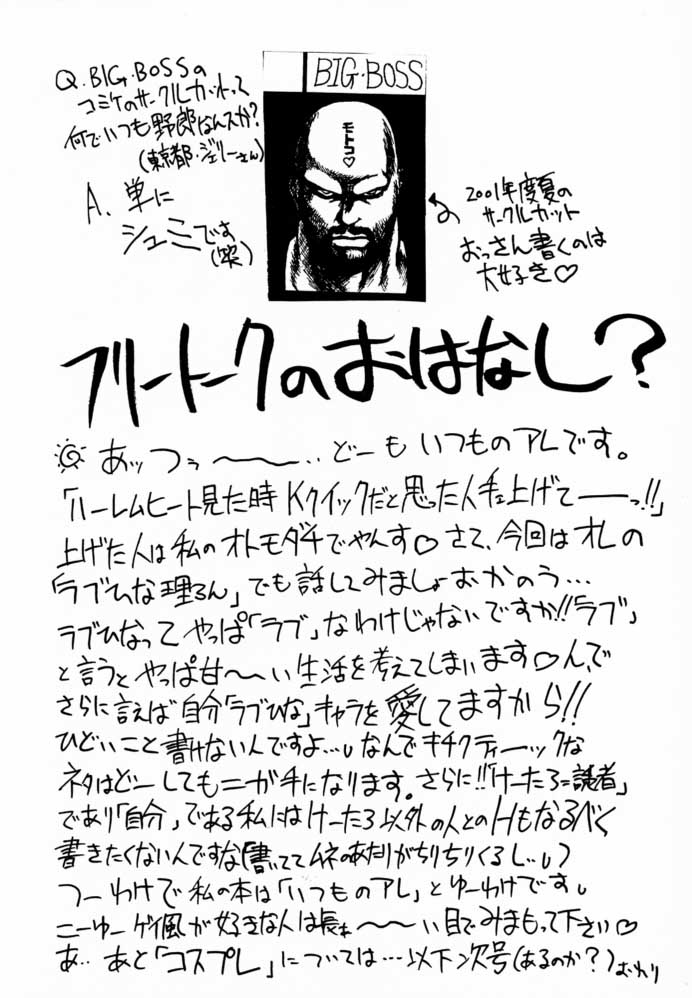 Q.BIG.BOSSの
コミケのサークルカットって
何でいつも野郎なんスか?
(東京都・ジェリーさん)
A.単に
シュミです
(笑)
BIG・BOSS
モトコ♡
2001年度夏の
サークルカット
おっさん書くのは
大好き♡
フリートークのおはなし?
あッつぅ〜〜‥どーもいつものアレです。
「ハーレムヒート見た時Kクイックだと思った人手上げてーーっ!!」
上げた人は私のオトモダチでやんす♡さて、今回はオレの
「ラブひな理ろん」でも話してみましょおかのう…
ラブひなってやっぱ「ラブ」なわけじゃないですか!!「ラブ」
と言うとやっぱ甘〜〜い生活を考えてしまいます♡んで
さらに言えば自分「ラブひな」キャラを愛してますから!!
ひどいこと書けない人ですよ…なんでキチクティーックな
ネタはどーしてもニガ手になります。さらに!!「けーたろ=読者」
であり「自分」である私にはけーたろ以外の人とのHもなるべく
書きたくないんですな(書いててムネのあたりがちりちりくるし‥)
つーわけで私の本は「いつものアレ」とゆーわけです
こーゆーゲイ風が好きな人は長ぁ〜〜い目でみまもって下さい♡
あ‥あと「コスプレ」については…以下次号(あるのか?)おわり